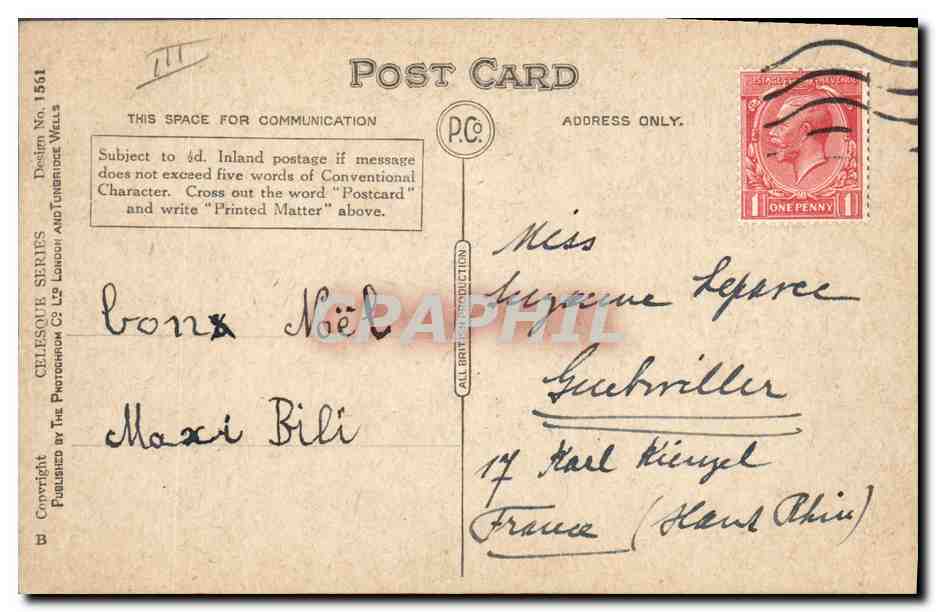 III
POST CARD
THIS SPACE FOR COMMUNICATION
P.Co
ADDRESS ONLY.
Subject to ½d. Inland postage if message
does not exceed five words of Conventional
Character. Cross out the word "Postcard"
and write "Printed Matter" above.
bonx Noël
Maxi Bili
Miss
Suzanne Leparce
Guebwiller
17 Karl Kienzel
France (Haut Rhin)
ONE PENNY
1 1
CPAPHIL
ALL BRITISH PRODUCTION
B Copyright CELESQUE SERIES Design No. 1561
PUBLISHED BY THE PHOTOCHROM CO LTD LONDON AND TUNBRIDGE WELLS